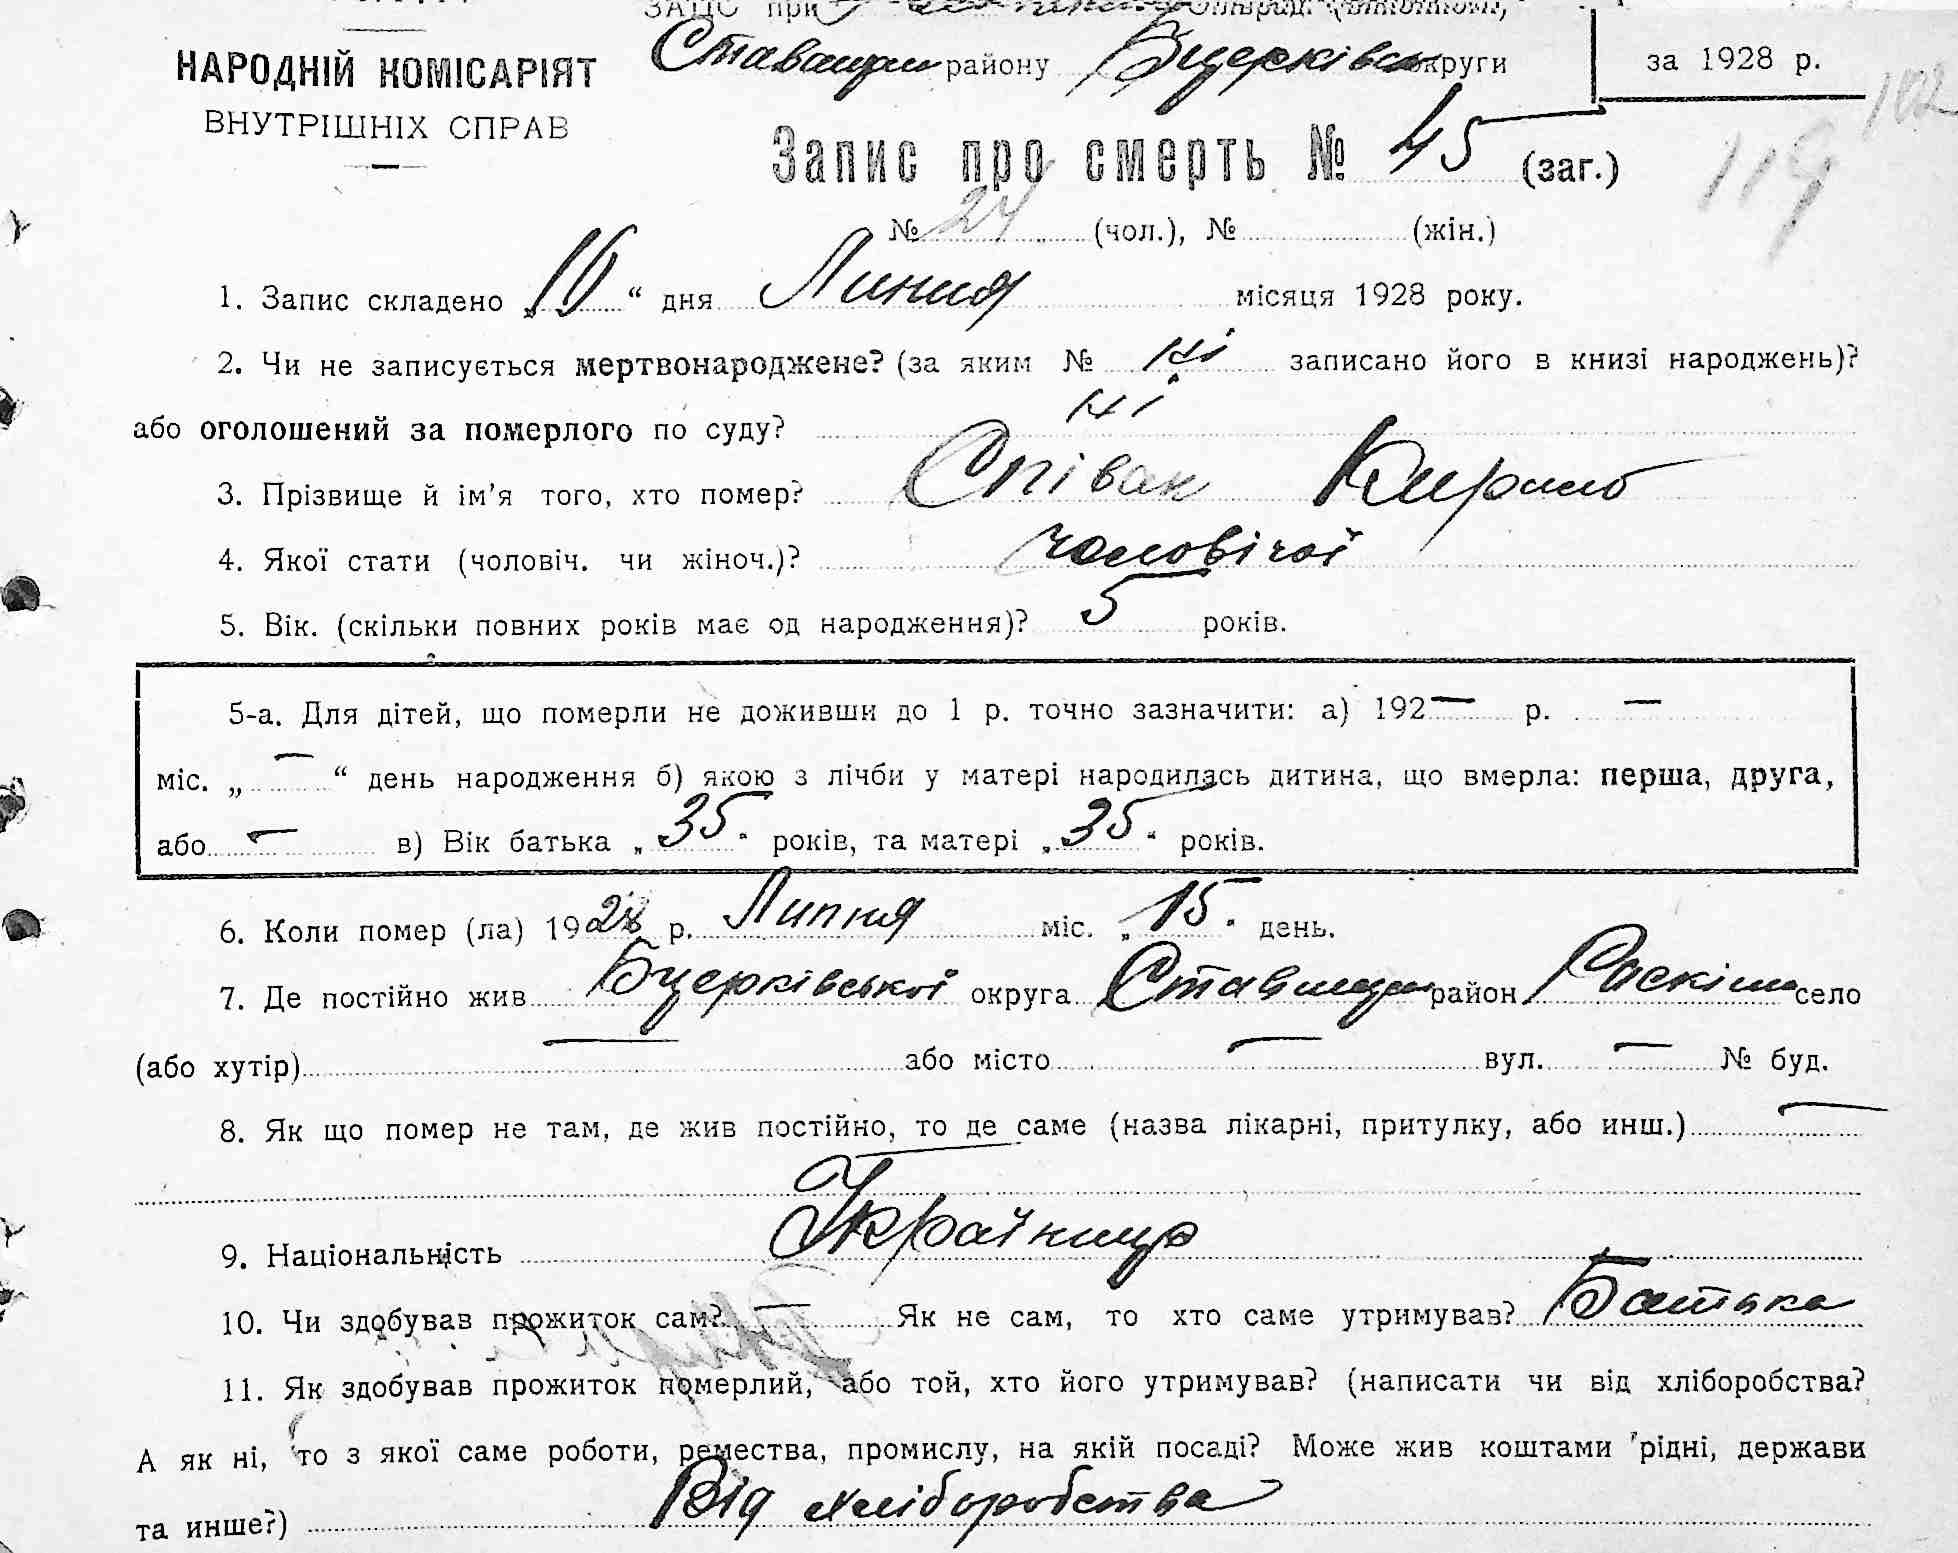 ЗАГС при
НАРОДНІЙ КОМІСАРІЯТ
ВНУТРІШНІХ СПРАВ
Ставищан району Бцерківськ округи
за 1928 р.
102
119
Запис про смерть № 45 (заг.)
№ 24 (чол.), № (жін.)
1. Запис складено „16“ дня Липня місяця 1928 року.
2. Чи не записується мертвонароджене? (за яким № ні записано його в книзі народжень)?
або оголошений за померлого по суду? ні
3. Прізвище й ім'я того, хто помер? Співак Кирило
4. Якої стати (чоловіч. чи жіноч.)? чоловічої
5. Вік. (скільки повних років має од народження)? 5 років.
5-а. Для дітей, що померли не доживши до 1 р. точно зазначити: а) 192— р. —
міс. „—“ день народження б) якою з лічби у матері народилась дитина, що вмерла: перша, друга,
або — в) Вік батька „35“ років, та матері „35“ років.
6. Коли помер (ла) 1928 р. Липня міс. „15“ день.
7. Де постійно жив Бцерківської округа Ставищан район Роскішна село
(або хутір) — або місто — вул. — № буд.
8. Як що помер не там, де жив постійно, то де саме (назва лікарні, притулку, або инш.) —
9. Національність Українець
10. Чи здобував прожиток сам? — Як не сам, то хто саме утримував? Батько
11. Як здобував прожиток померлий, або той, хто його утримував? (написати чи від хліборобства?
А як ні, то з якої саме роботи, ремества, промислу, на якій посаді? Може жив коштами рідні, держави
та инше?) Від хліборобства